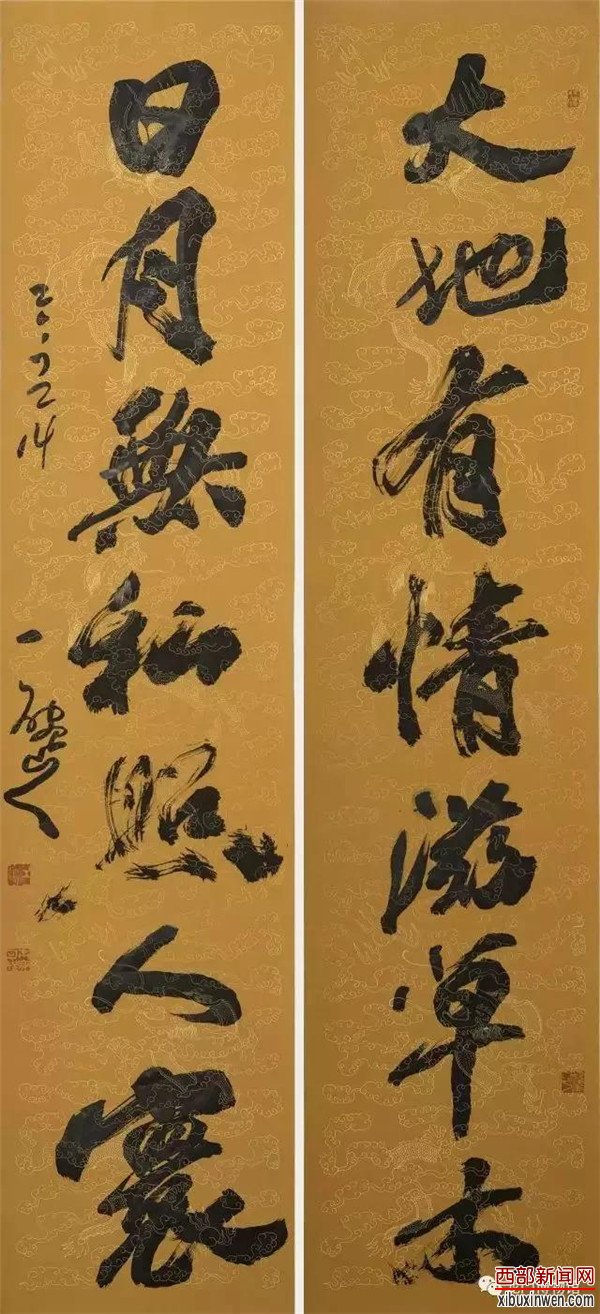 大地有情滋草木
日月無私照人寰
西部新闻网
xibuxinwen.com